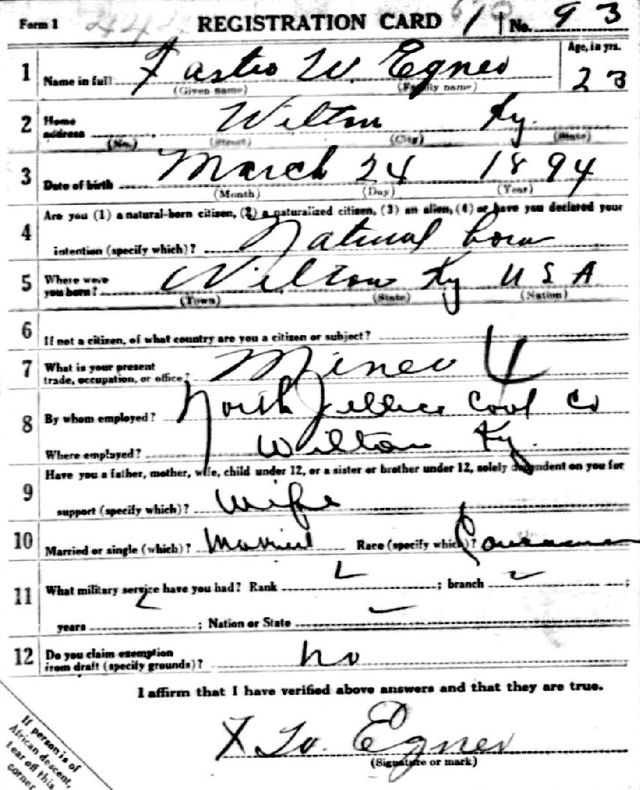 Form 1 REGISTRATION CARD No. 93
1 Name in full Fastro W. Egner Age, in yrs. 23
(Given name) (Family name)
2 Home address Wilton Ky.
(No.) (Street) (City) (State)
3 Date of birth March 24 1894
(Month) (Day) (Year)
4 Are you (1) a natural-born citizen, (2) a naturalized citizen, (3) an alien, (4) or have you declared your
intention (specify which)? Natural born
5 Where were you born? Wilton Ky U S A
(Town) (State) (Nation)
6 If not a citizen, of what country are you a citizen or subject?
7 What is your present trade, occupation, or office? Miner 4
8 By whom employed? North Jellico Coal Co
Where employed? Wilton Ky.
9 Have you a father, mother, wife, child under 12, or a sister or brother under 12, solely dependent on you for
support (specify which)? Wife
10 Married or single (which)? Married Race (specify which)? Caucasian
11 What military service have you had? Rank ; branch ;
years ; Nation or State
12 Do you claim exemption from draft (specify grounds)? No
I affirm that I have verified above answers and that they are true.
Egner
(Signature or mark)
If person is of
African descent,
tear off this
corner